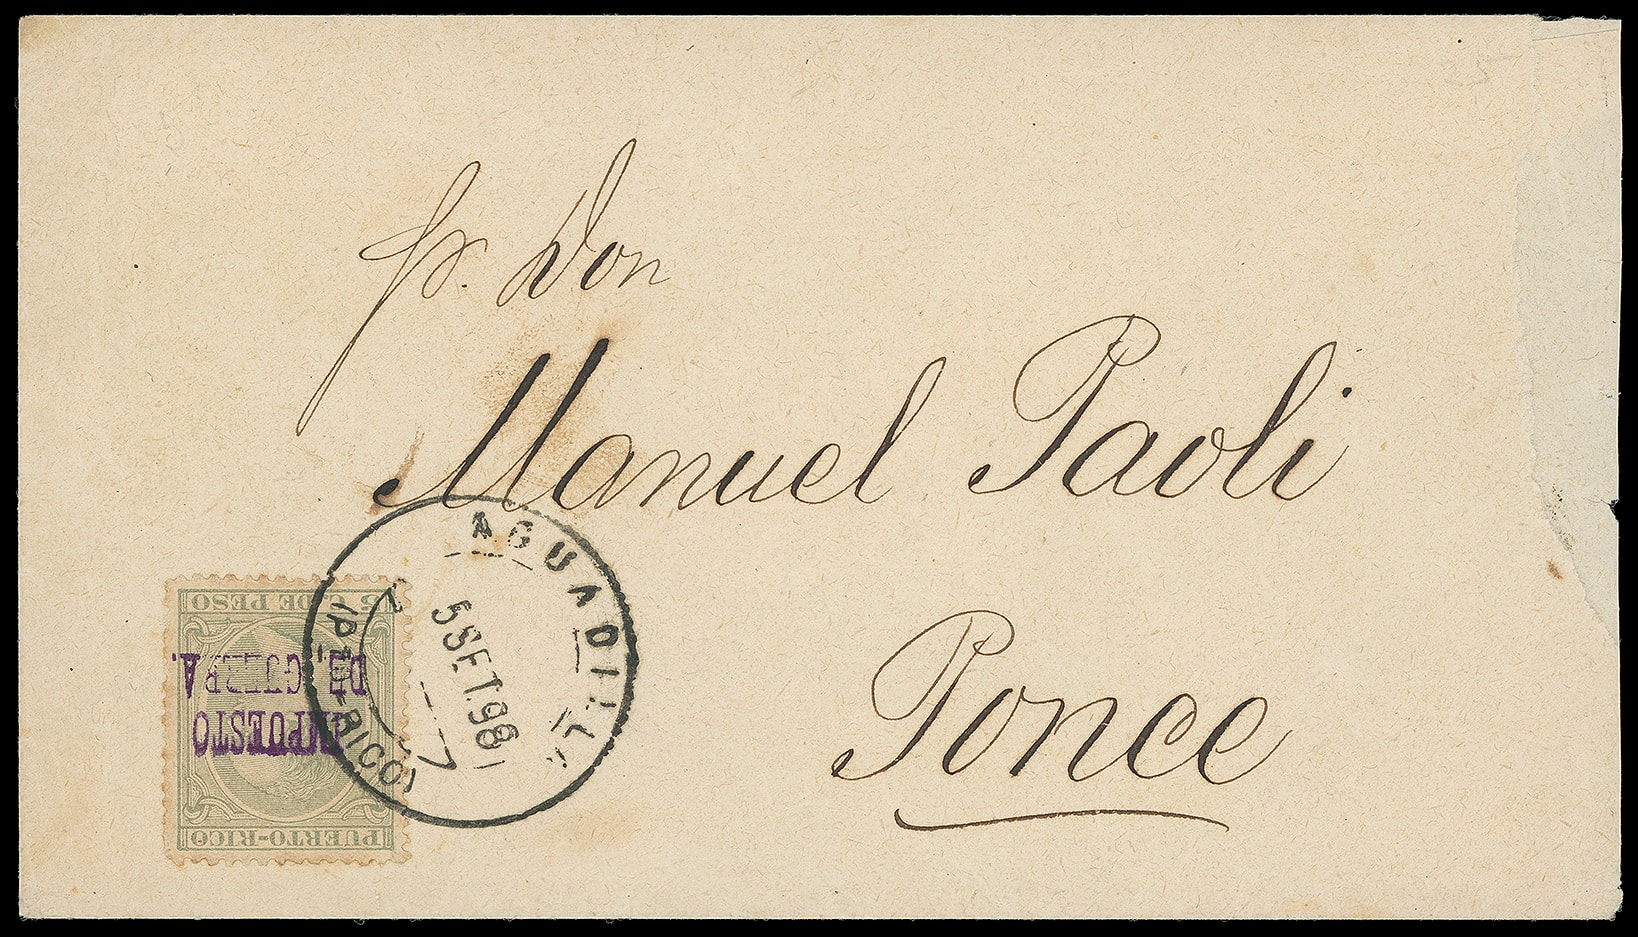 Sr. Don
Manuel Paoli
Ponce
AGUADILLA
5 SET. 98
(PTO-RICO)
8 C. DE PESO
IMPUESTO
DE GUERRA.
PUERTO-RICO
25